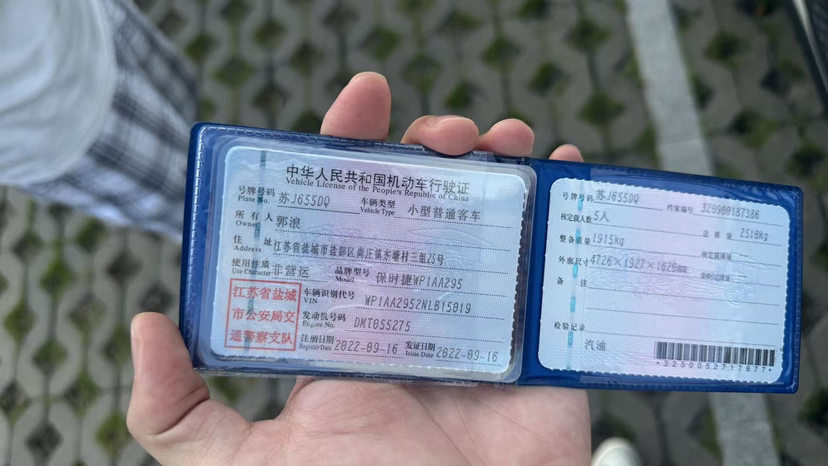 中华人民共和国机动车行驶证
Vehicle License of the People's Republic of China
号牌号码 Plate No. 苏J655DQ 车辆类型 Vehicle Type 小型普通客车
所有人 Owner 郭浪
住址 Address 江苏省盐城市盐都区尚庄镇东塘村三组25号
使用性质 Use Character 非营运 品牌型号 Model 保时捷WP1AA295
江苏省盐城
市公安局交
通警察支队
车辆识别代号 VIN WP1AA2952NLB15019
发动机号码 Engine No. DMT055275
注册日期 Register Date 2022-09-16 发证日期 Issue Date 2022-09-16
号牌号码 苏J655DQ 档案编号 320900187386
核定载人数 5人 总质量 2518kg
整备质量 1915kg 核定载质量
外廓尺寸 4726×1927×1629
备注
检验记录
汽油
*3250052717677*